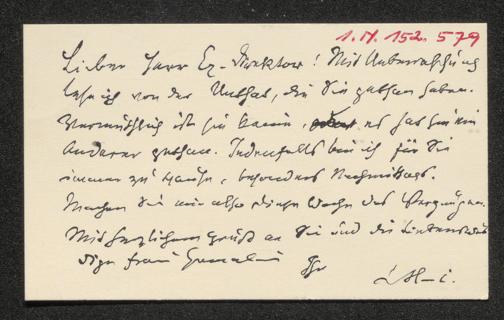 1. N. 152.579
Lieber Herr Ex-Direktor! Mit Ueberraschung
lese ich von der Unthat, die Sie gethan haben.
Vermuthlich ist sie kaum, es hat sie ein
Anderer gethan. Jedenfalls bin ich für Sie
immer zu Hause, besonders Nachmittags.
Machen Sie mir also diese Woche das Vergnügen.
Mit herzlichem Gruß an Sie und die
Frau Gemahlin Ihr